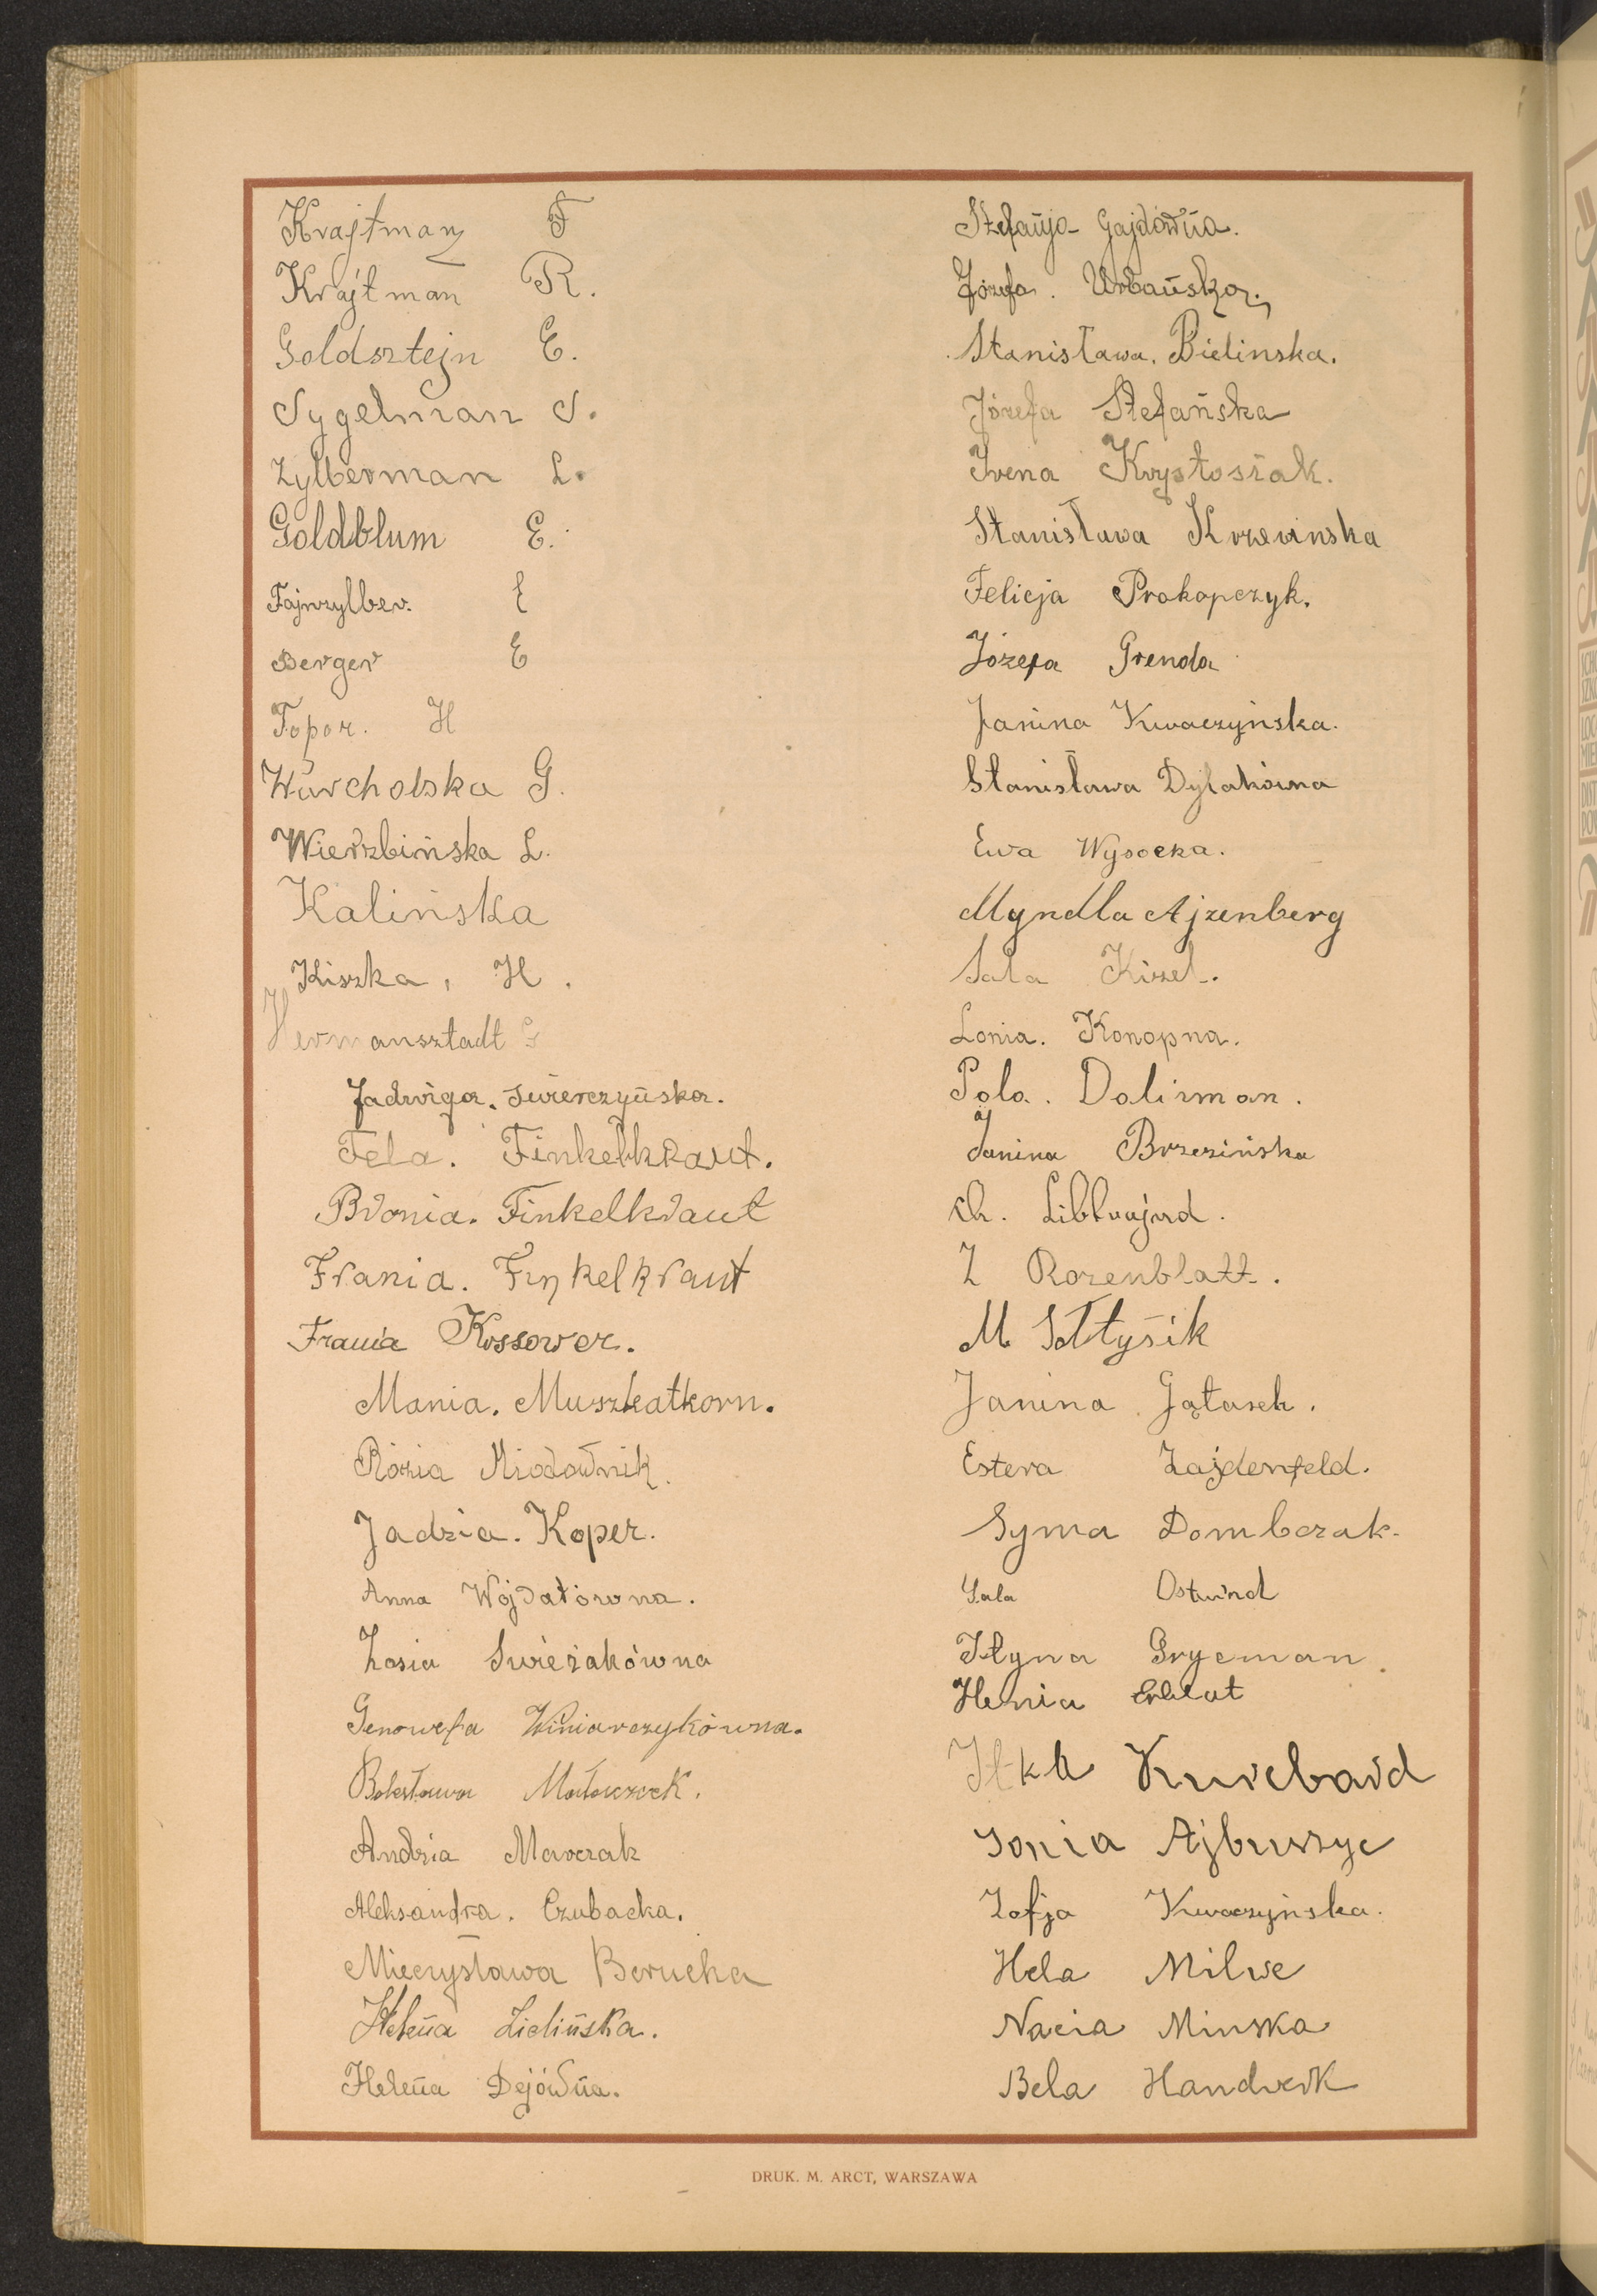 Krajtman F
Krajtman R.
Goldsztejn E.
Sygelman S.
Zylberman L.
Goldblum E.
Fajnzylber. E
Berger E
Topor. H
Warcholska G.
Wierzbińska L.
Kalińska
Kiszka, H.
Hermansztadt G
Jadwiga. Świerczyńska.
Fela. Finkelkraut.
Bronia. Finkelkraut
Frania. Finkelkraut
Frania Kossower.
Mania. Muszkatkorn.
Rózia Miodownik.
Jadzia. Koper.
Anna Wójdatówna.
Zosia Świeżakówna
Genowefa Winiarczykówna.
Bolesława
Andzia Marczak
Aleksandra. Czubacka.
Mieczysława Berucka
Helena Zielińska.
Helena Dejówna.
Stefanja Gajdówna.
Józefa. Urbańska.
Stanisława. Bielinska.
Józefa Stefańska
Irena Krystosiak.
Stanisława Krzewinska
Felicja Prokopczyk.
Józefa Grenda
Janina Kwaczyńska.
Stanisława Dylakówna
Ewa Wysocka.
Myndla Ajzenberg
Sala Kizel.
Lonia. Konopna.
Pola. Dolirman.
Janina Brzezińska
Ch.
Z Rozenblatt.
M Sołtysik
Janina Gątarek.
Estera Zajdenfeld.
Syma Dombczak.
Sala Ostwind
Itka
Henia Erblat
Grycman
Sonia Ajbuszyc
Zofja Kwaczyńska.
Hela Milwe
Nacia Minska
Bela Handwerk
DRUK. M. ARCT, WARSZAWA